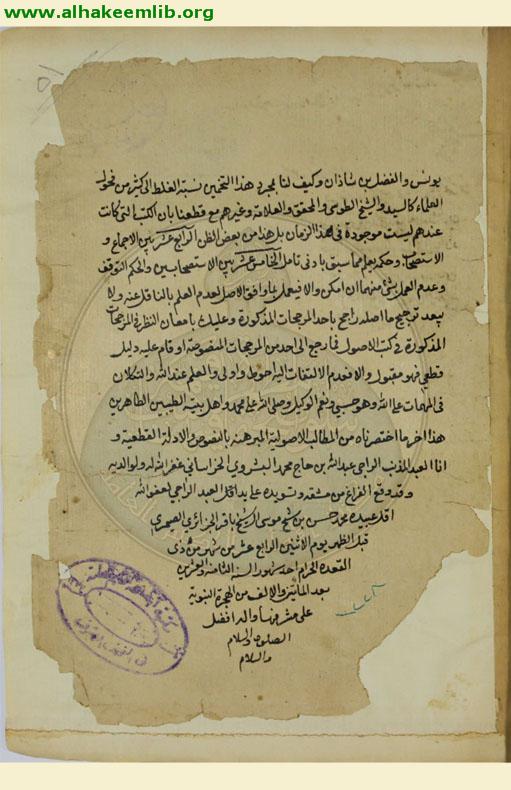 www.alhakeemlib.org
يونس والفضل بن شاذان وكيف لنا بمجرد هذا التخمين نسبة الغلط الى كثير من فحول
العلماء كالسيد والشيخ الطوسي والمحقق والعلامة وغيرهم مع قطعنا بان الكتب التي كانت
عندهم ليست موجودة في هذا الزمان بل هذا من بعض الظن الرابع عشر بين الاجماع و
الاستصحاب وحكمه يعلم مما سبق بادنى تامل الخامس عشر بين الاستصحابين والحكم التوقف
وعدم العمل بشئ منهما ان امكن والا فيعمل بما وافق الاصل لعدم العلم بالناقل عنه ولا
يبعد ترجيح ما اصله راجح باحد المرجحات المذكورة وعليك بامعان النظر في المرجحات
المذكورة في كتب الاصول فما رجع الى احد من المرجحات المنصوصة او قام عليه دليل
قطعي فهو مقبول والا فعدم الالتفات اليه احوط واولى والعلم عند الله والتكلان
في المهمات على الله وهو حسبي ونعم الوكيل وصلى الله على محمد واهل بيته الطيبين الطاهرين
هذا اخر ما اختصرناه من المطالب الاصولية المبرهنة بالنصوص والادلة القطعية و
انا العبد المذنب الراجي عبدالله بن حاج محمد البشروي الخراساني غفر الله له ولوالديه
وقد وقع الفراغ من مشقه وتسويده على يد اقل العبد الراجي لعفو الله
اقل عبيده محمد حسن بن شيخ موسى الشيخ باقر الجزائري الصيمري
قبل الظهر يوم الاثنين الرابع عشر من شهر ذي
القعدة الحرام احد شهور السنة الثامنة والعشرين
بعد المأتين والالف من الهجرة النبوية
على مشرفها واله افضل
الصلوة والسلام
والسلام